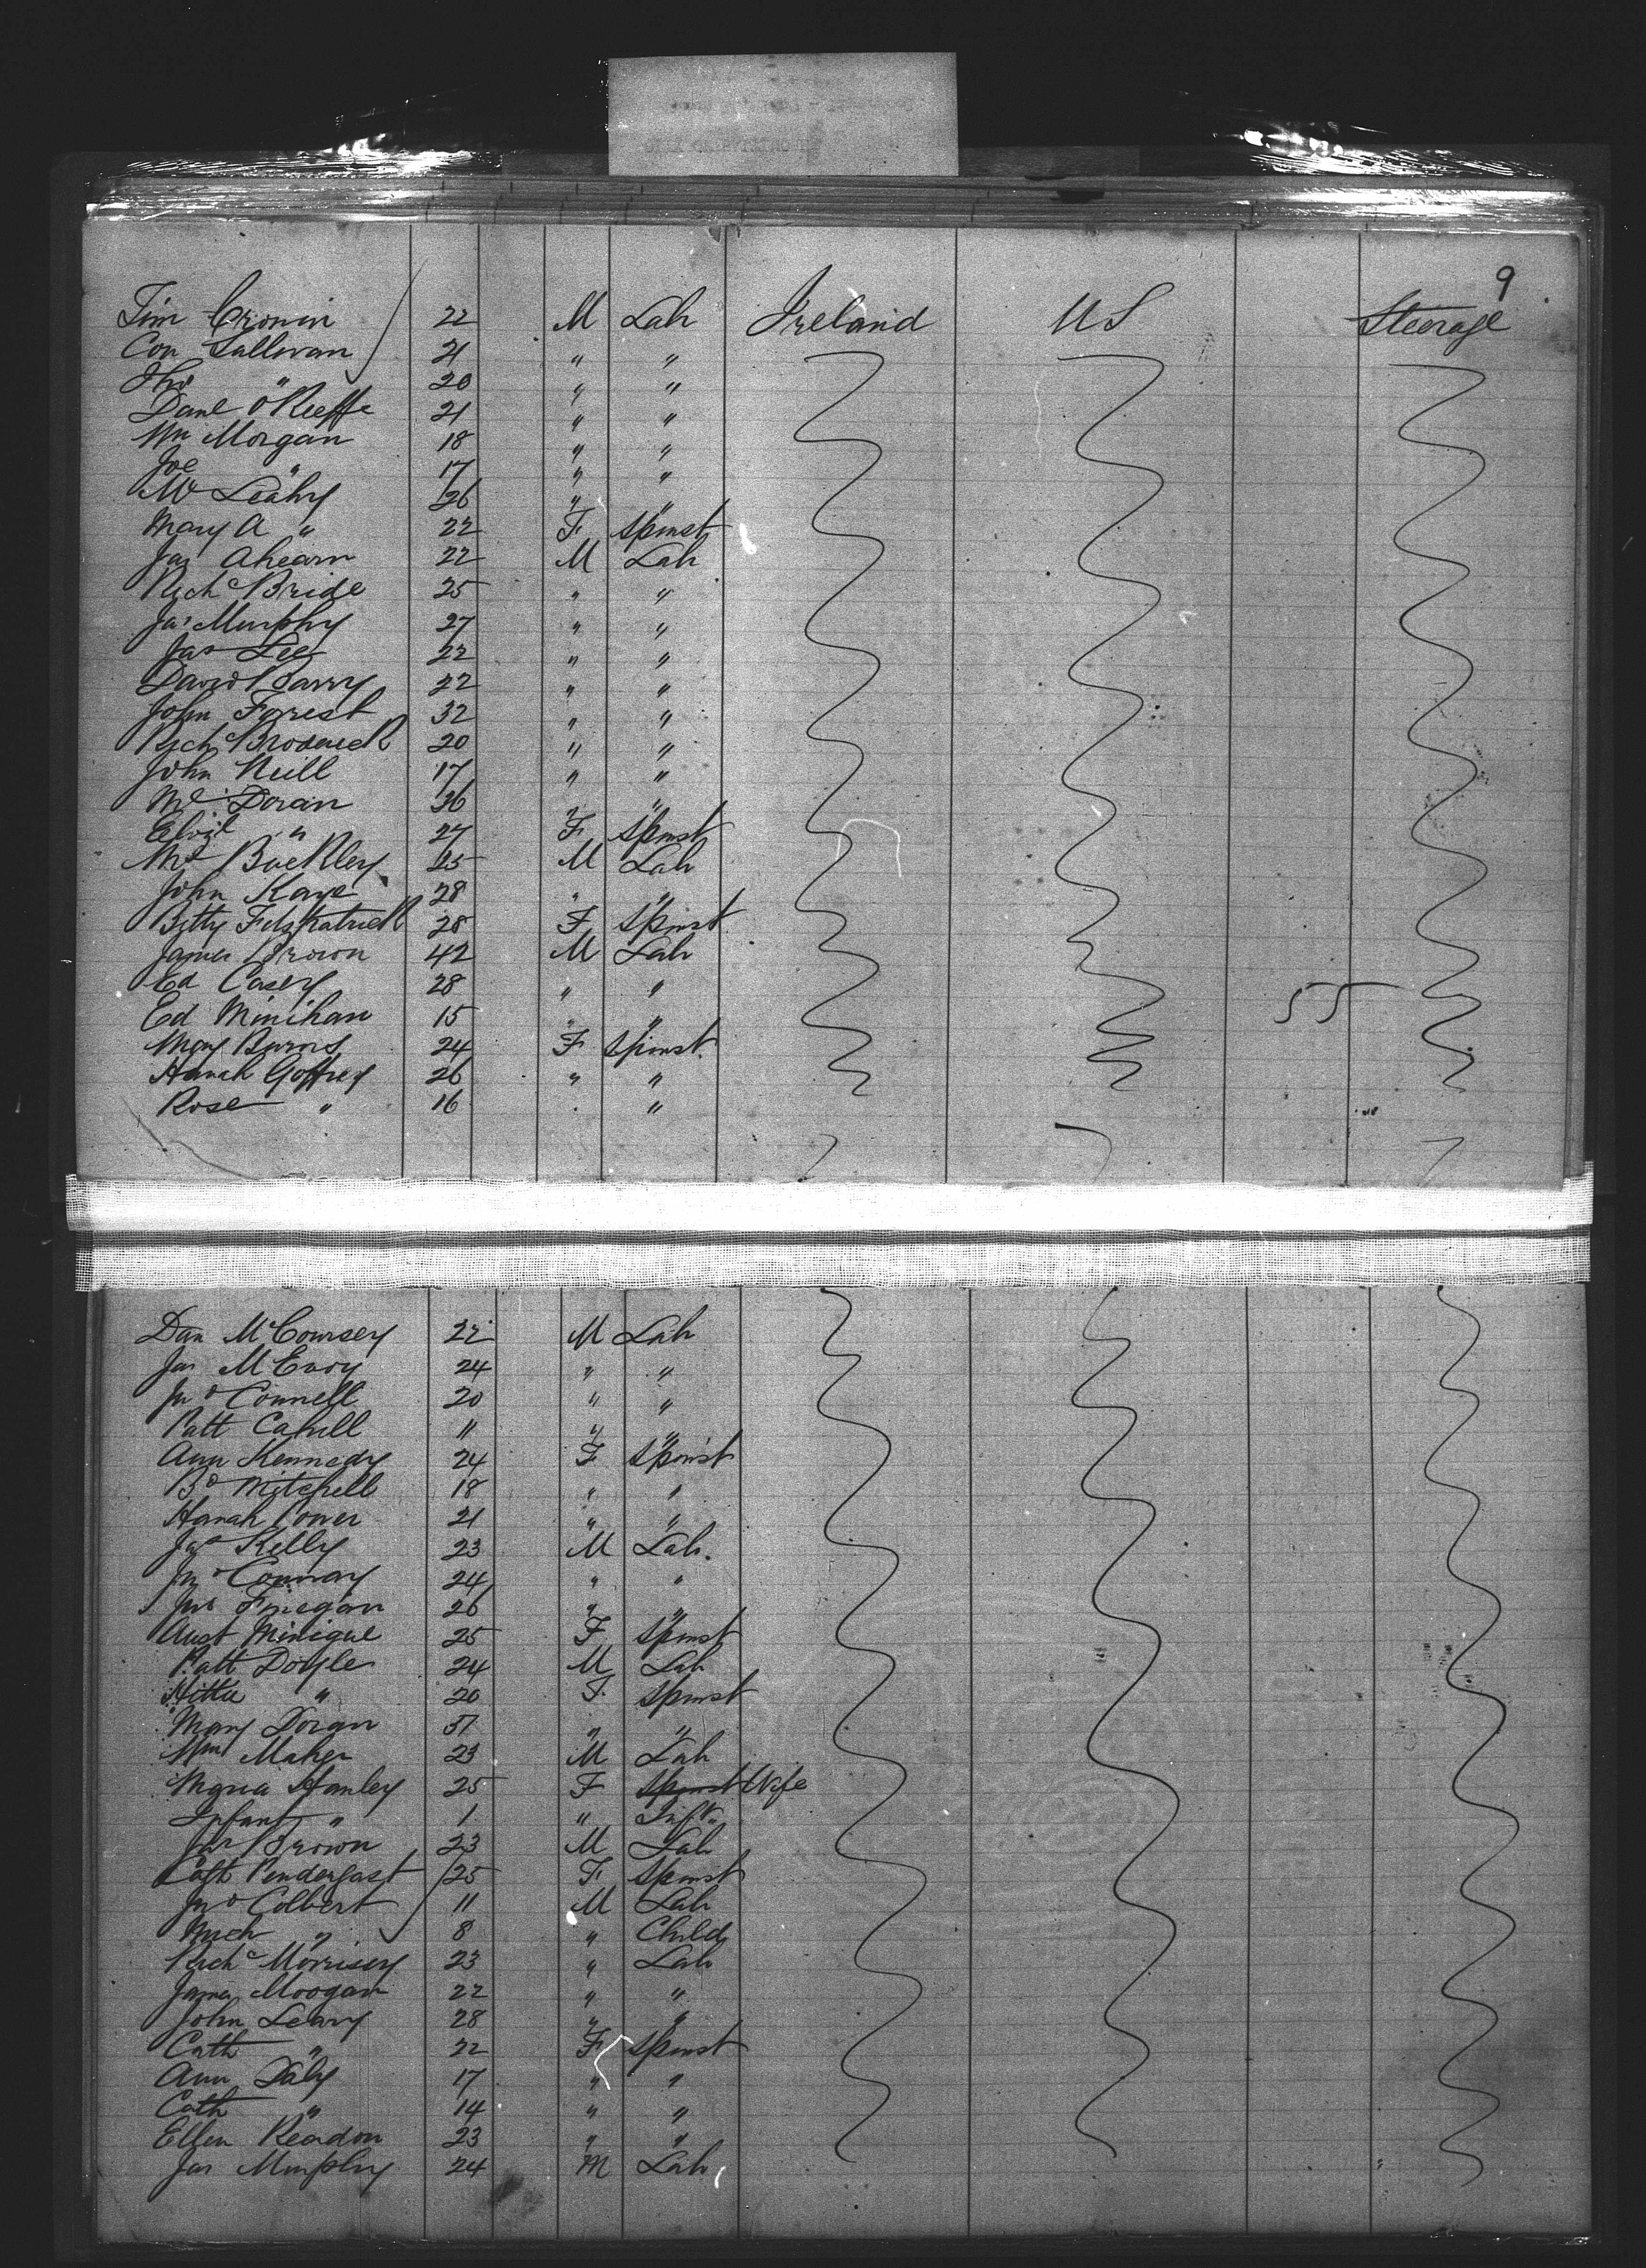 9
Tim Cronin 22 M Lab Ireland US Steerage
Con Sullivan 21 " "
Tho " 20 " "
Danl O'Keeffe 21 " "
Wm Morgan 18 " "
Joe " 17 " "
Leahy 26 " "
Mary A " 22 F Spinst
Jas Ahearn 22 M Lab
Richd Bride 25 " "
Jas Murphy 27 " "
Jas Lee 22 " "
David Barry 22 " "
John Forrest 32 " "
Richd Broderick 20 " "
John Neill 17 " "
Ml Doran 36 " "
" 27 F Spinst
Buckley 25 M Lab
John Kane 28 " "
Betty Fitzpatrick 28 F Spinst
James Brown 42 M Lab
Ed Casey 28 " "
55
Ed Minihan 15 " "
Mary Burns 24 F Spinst.
Hanah Goffrey 26 " "
Rose " 16 "
Dan McCoursey 22 M Lab
Jas McEvoy 24 " "
Jno Connell 20 " "
Patt Cahill 11 " "
Ann Kennedy 24 F Spinst
Bd Mitchell 18 " "
Hanah Power 21 " "
Jas Kelly 23 M Lab.
Jno Conway 24 " "
Jno Finegan 26 " "
Aust Minigue 25 F Spinst
Patt Doyle 24 M Lab
Hittie " 20 F Spinst
Mary Doran 37 " "
Wm Maher 23 M Lab
Maria Hanley 25 F Spinst Wife
Infant " 1 " Inft.
Jas Brown 23 M Lab
Cath Pendergast 25 F Spinst
Jno Colbert 11 M Lab
Mich " 8 " Child
Richd Morrisey 23 " Lab
James Moogan 22 " "
John Leary 28 " "
Cath " 22 F Spinst
Ann Daly 17 " "
Cath " 14 " "
Ellen Reardon 23 " "
Jas Murphy 24 M Lab